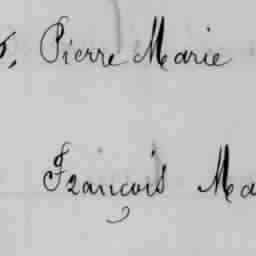 Pierre Marie
François Ma